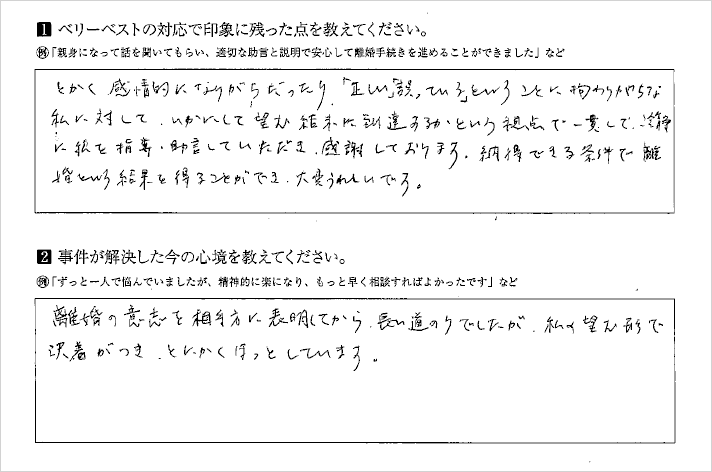 1 ベリーベストの対応で印象に残った点を教えてください。
例「親身になって話を聞いてもらい、適切な助言と説明で安心して離婚手続きを進めることができました」など
とかく感情的になりがちだったり、「正しい」「誤っている」ということに拘わりがちな
私に対して、いかにして望む結末に到達するかという視点で一貫して、冷静
に私を指導・助言していただき、感謝しております。納得できる条件で離
婚という結果を得ることができ、大変うれしいです。
2 事件が解決した今の心境を教えてください。
例「ずっと一人で悩んでいましたが、精神的に楽になり、もっと早く相談すればよかったです」など
離婚の意志を相手方に表明してから、長い道のりでしたが、私の望む形で
決着がつき、とにかくほっとしています。